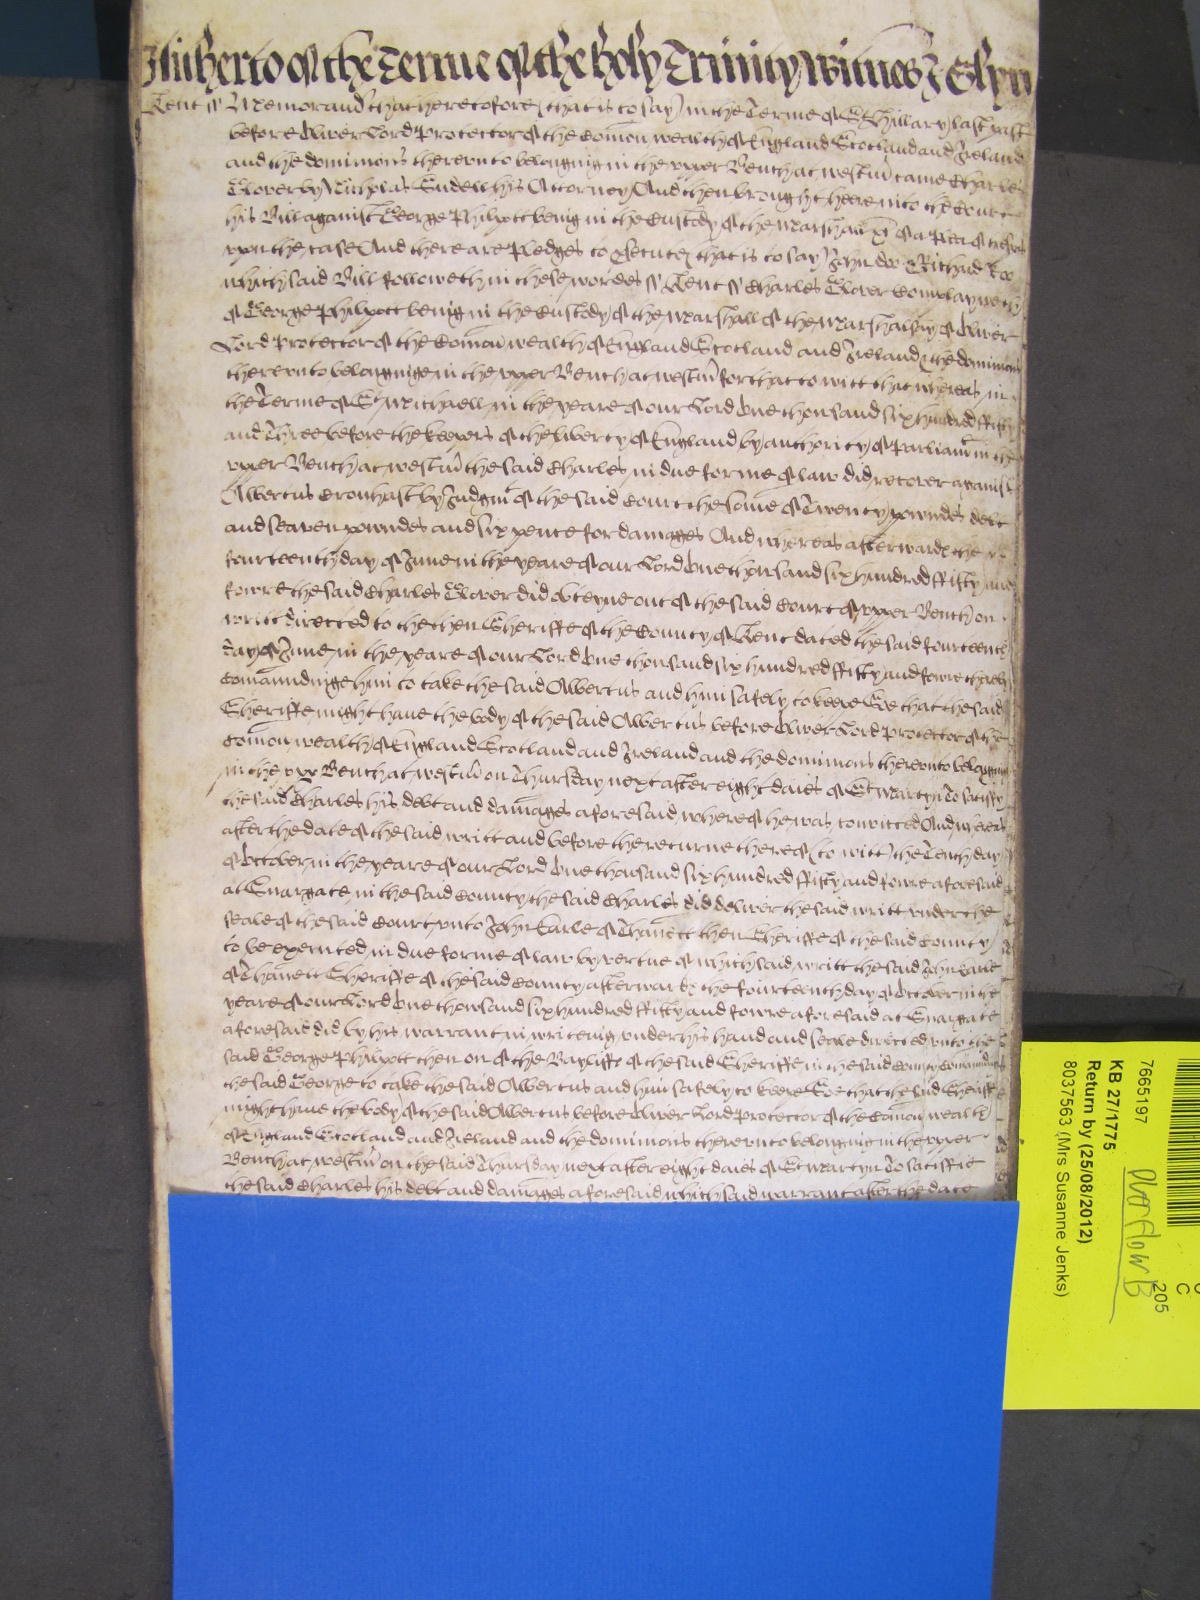 Hitherto of the Terme of the holy Trinity Witnes J Glyn
Kent ss Memorand that heretofore (that is to say) in the Terme of St Hillary last past
before Oliver Lord Protector of the Comon wealth of England Scotland and Ireland
and the dominions thereunto belonging in the upper Bench at westm came Charles
Glover by Nicholas Endell his Attorney And then brought here into the Court
his Bill against George Philpott being in the Custody of the Marshall &c of a Plea of trespas
upon the case And there are Pledges to prosecute (that is to say) John doe & Richard Roe
which said Bill followeth in these wordes ss Kent ss Charles Glover Complayneth
of George Philpott being in the Custody of the Marshall of the Marshalsey of Oliver
Lord Protector of the Comon wealth of England Scotland and Ireland & the dominions
thereunto belonginge in the upper Bench at westm for that to witt that whereas in
the Terme of St Michaell in the yeare of our Lord One thousand six hundred fifty
and Three before the keepers of the liberty of England by authority of Parliam in the
upper Bench at westm the said Charles in due forme of law did recover against
Albertus Cronhast by Judgmt of the said Court the some of Twenty powndes debt
and seaven powndes and six pence for damages And whereas afterwards the
fourteenth day of June in the yeare of our Lord One thousand six hundred fifty and
fowre the said Charles Glover did obteyne out of the said Court of upper Bench on
writt directed to the then Sheriffe of the County of Kent dated the said fourteenth
day of June in the yeare of our Lord One thousand six hundred fifty and fowre thereby
Comaundinge him to take the said Albertus and him safely to keepe Soe that the said
Sheriffe might have the body of the said Albertus before Oliver Lord Protector of the
Comon wealth of England Scotland and Ireland and the dominions thereunto belonging
in the upp Bench at westm on Thursday next after eight daies of St Martyn To satisfy
the said Charles his debt and damages aforesaid whereof he was convicted And whereas
after the date of the said writt and before the returne thereof (to witt) the Tenth day
of October in the yeare of our Lord One thousand six hundred fifty and fowre aforesaid
at Snargate in the said County the said Charles did deliver the said writt under the
seale of the said Court unto John Earle of Thanett then Sheriffe of the said County
to be executed in due forme of law by vertue of which said writt the said John Earle
of Thanett Sheriffe of the said County afterwards the fourteenth day of October in the
yeare of our Lord One thousand six hundred fifty and fowre aforesaid at Snargate
aforesaid did by his warrant in writeing under his hand and seale directed unto the
said George Philpott then on of the Bayliffs of the said Sheriffe in the said County Comaunding
the said George to take the said Albertus and him safely to keepe Soe that the said Sheriffe
might have the body of the said Albertus before Oliver Lord Protector of the Comon wealth
of England Scotland and Ireland and the dominions thereunto belonging in the upper
Bench at westm on the said Thursday next after eight daies of St Martyn To satisfie
the said Charles his debt and damages aforesaid which said warrant after the date
7665197
KB 27/1775
Return by (25/08/2012)
8037563 (Mrs Susanne Jenks)
Overflow B
205
C